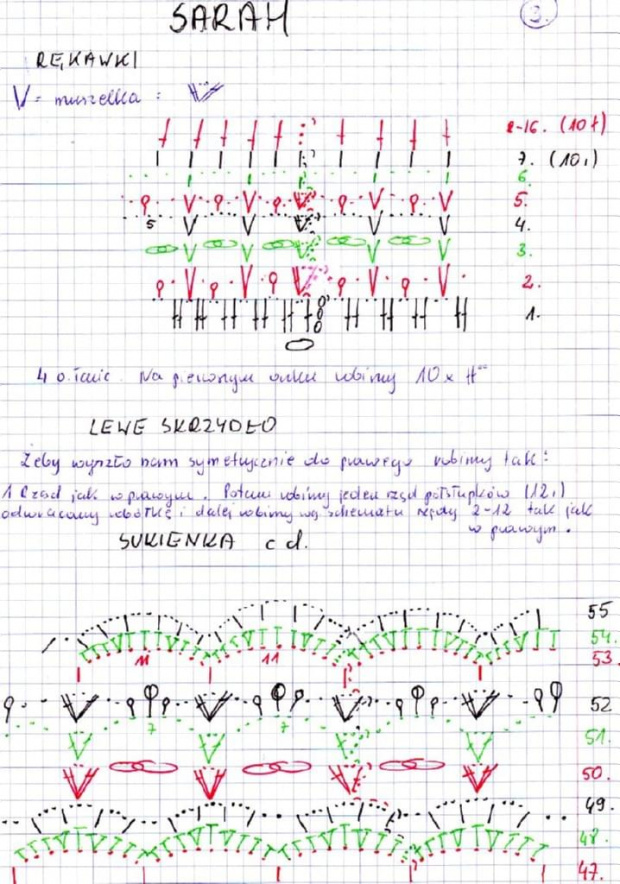 SARAH
3.
RĘKAWKI
V = muszelka =
8-16. (10 ł)
7. (10,)
6.
5.
5
4.
3.
2.
1.
4 o. łańc. Na pierwszym oczku robimy 10 x
LEWE SKRZYDŁO
Żeby wyszło nam symetrycznie do prawego robimy tak:
1 Rząd jak w prawym. Potem robimy jeden rząd półsłupków (12,)
odwracamy robótkę i dalej robimy wg schematu rzędy 2-12 tak jak
w prawym.
SUKIENKA c d.
55
54.
11 11
53.
52
7 7
51.
50.
49.
48.
47.